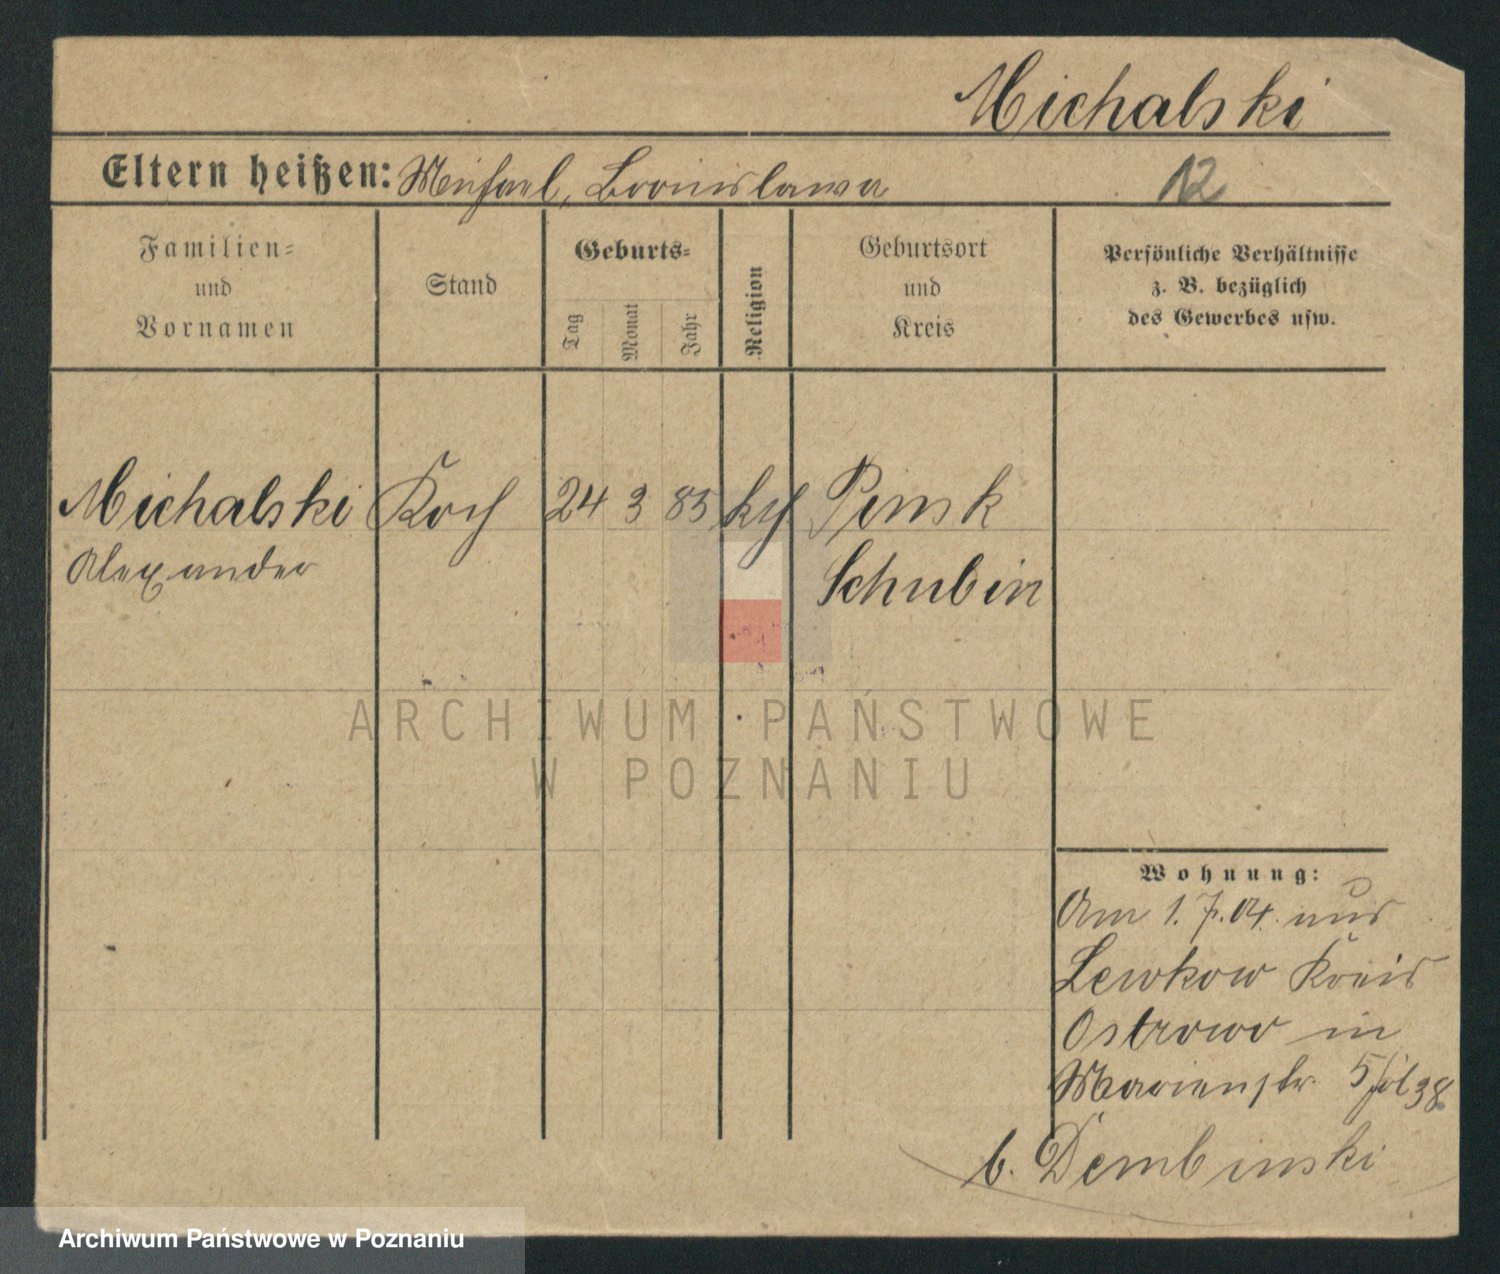 Michalski
Eltern heißen: Michael, Bronislawa
12
Familien=
und
Vornamen
Stand
Geburts=
Tag
Monat
Jahr
Religion
Geburtsort
und
Kreis
Persönliche Verhältnisse
z. B. bezüglich
des Gewerbes usw.
Michalski Koch 24 3 85 kth Pinsk
Alexander
Schubin
ARCHIWUM PAŃSTWOWE
W POZNANIU
Wohnung:
Am 1. 7. 04. aus
Lewkow Kreis
Ostrowo in
Marienstr. 5 fol 38
b. Dembinski
Archiwum Państwowe w Poznaniu